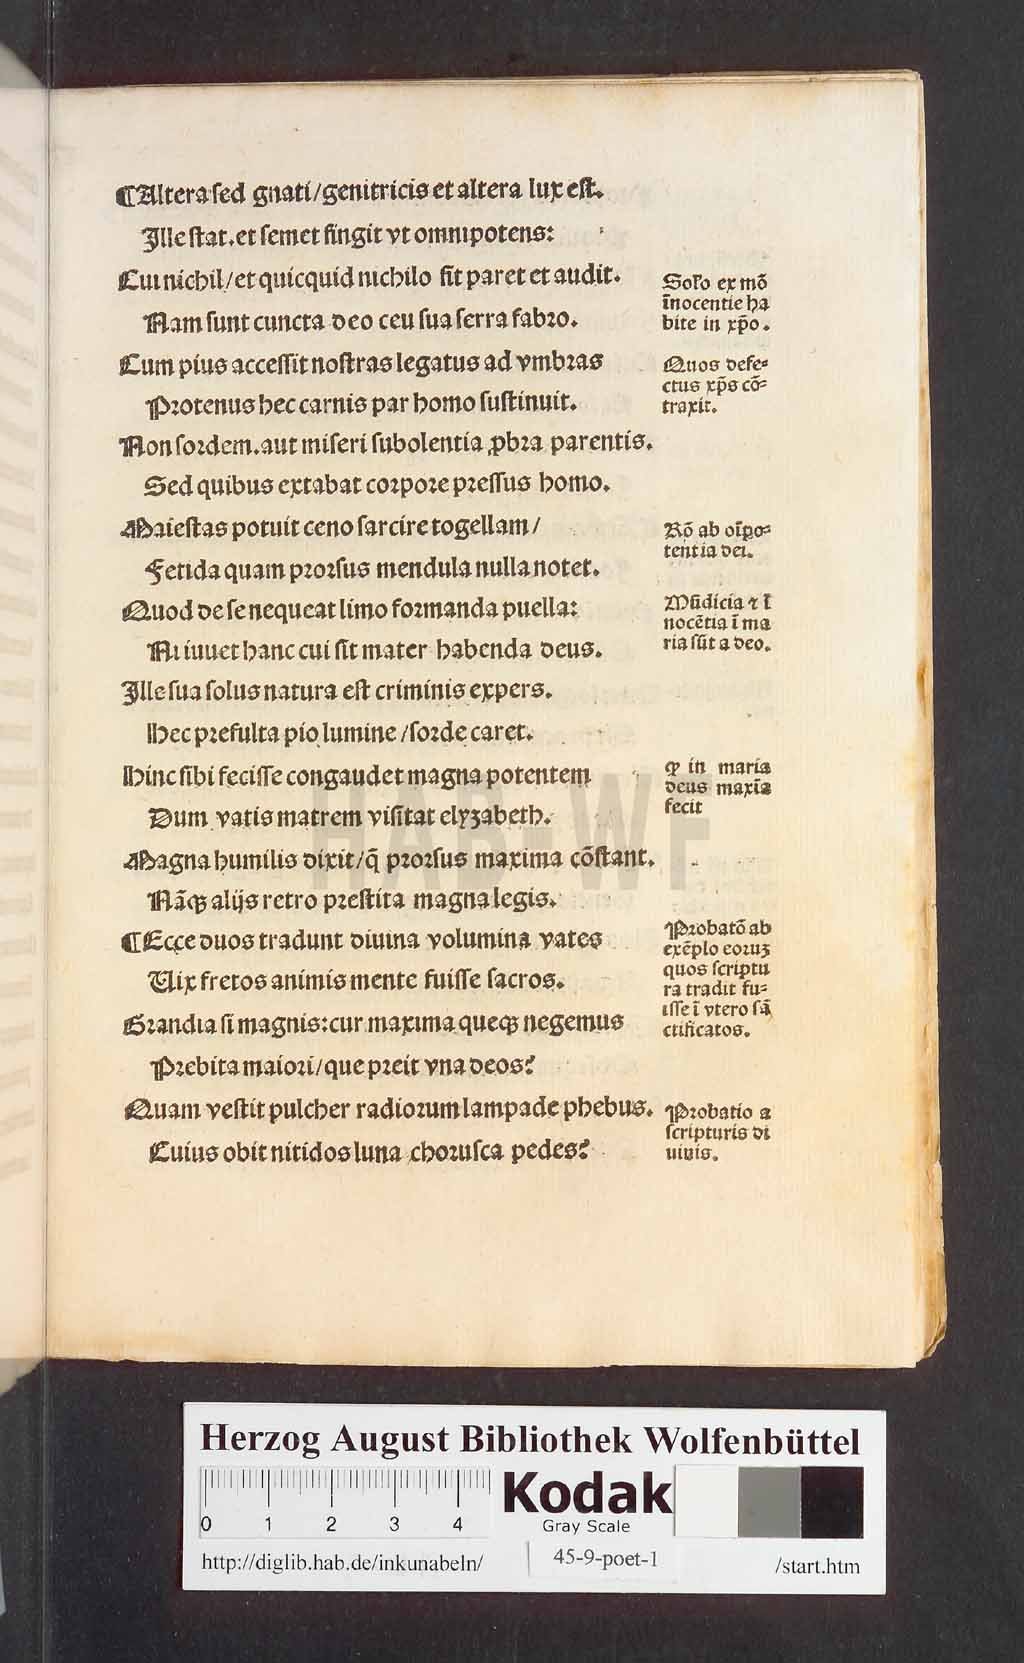 ¶Altera sed gnati/genitricis et altera lux est.
Ille stat.et semet fingit vt omnipotens:
Cui nichil/et quicquid nichilo fit paret et audit.
Nam sunt cuncta deo ceu sua serra fabro.
Cum pius accessit nostras legatus ad vmbras
Protenus hec carnis par homo sustinuit.
Non sordem.aut miseri subolentia ꝓbra parentis.
Sed quibus extabat corpore pressus homo.
Maiestas potuit ceno sarcire togellam/
Fetida quam prorsus mendula nulla notet.
Quod de se nequeat limo formanda puella:
Ni iuuet hanc cui sit mater habenda deus.
Ille sua solus natura est criminis expers.
Hec prefulta pio lumine/sorde caret.
Hinc sibi fecisse congaudet magna potentem
Dum vatis matrem visitat elyzabeth.
Magna humilis dixit/q̄ prorsus maxima cōstant.
Nāqꝫ alijs retro prestita magna legis.
¶Ecce duos tradunt diuina volumina vates
Uix fretos animis mente fuisse sacros.
Grandia si magnis:cur maxima queqꝫ negemus
Prebita maiori/que preit vna deos?
Quam vestit pulcher radiorum lampade phebus.
Cuius obit nitidos luna chorusca pedes?
Solo ex mō
īnocentie ha
bite in xp̄o.
Quos defe-
ctus xp̄s cō-
traxit.
Rō ab oīpo-
tentia dei.
Mūdicia ⁊ ī
nocētia ī ma
ria sūt a deo.
ꝙ in maria
deus maxīa
fecit
Probatō ab
exēplo eoruꝫ
quos scriptu
ra tradit fu-
isse ī vtero sā
ctificatos.
Probatio a
scripturis di
uinis.
HAB-WF
Herzog August Bibliothek Wolfenbüttel
0 1 2 3 4
Kodak
Gray Scale
http://diglib.hab.de/inkunabeln/
45-9-poet-1
/start.htm